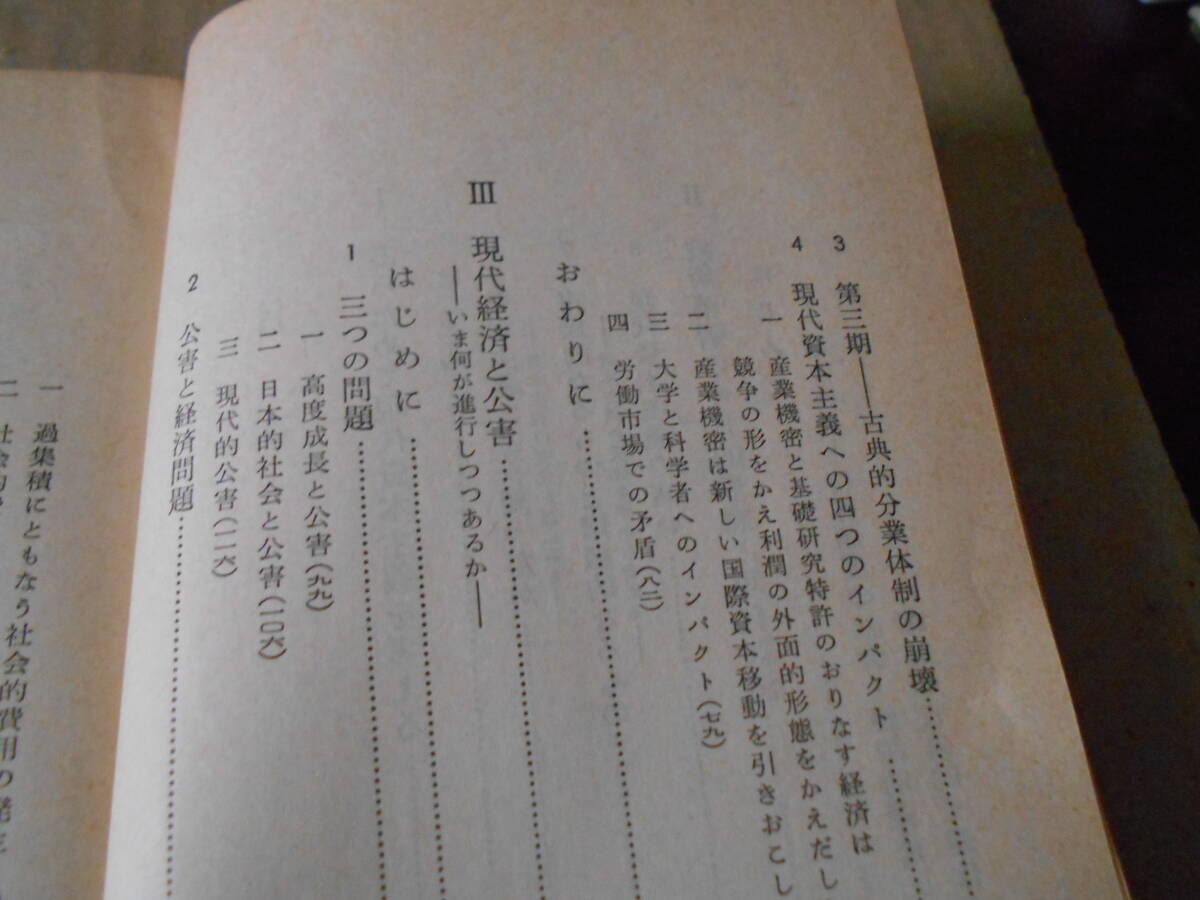 3 第三期――古典的分業体制の崩壊
4 現代資本主義への四つのインパクト
一 産業機密と基礎研究特許のおりなす経済は
競争の形をかえ利潤の外面的形態をかえだし
二 産業機密は新しい国際資本移動を引きおこし
三 大学と科学者へのインパクト(七九)
四 労働市場での矛盾(八二)
おわりに
Ⅲ 現代経済と公害
――いま何が進行しつつあるか――
はじめに
1 三つの問題
一 高度成長と公害(九九)
二 日本的社会と公害(一〇六)
三 現代的公害(一一六)
2 公害と経済問題
一 過集積にともなう社会的費用の発生
二 社会的